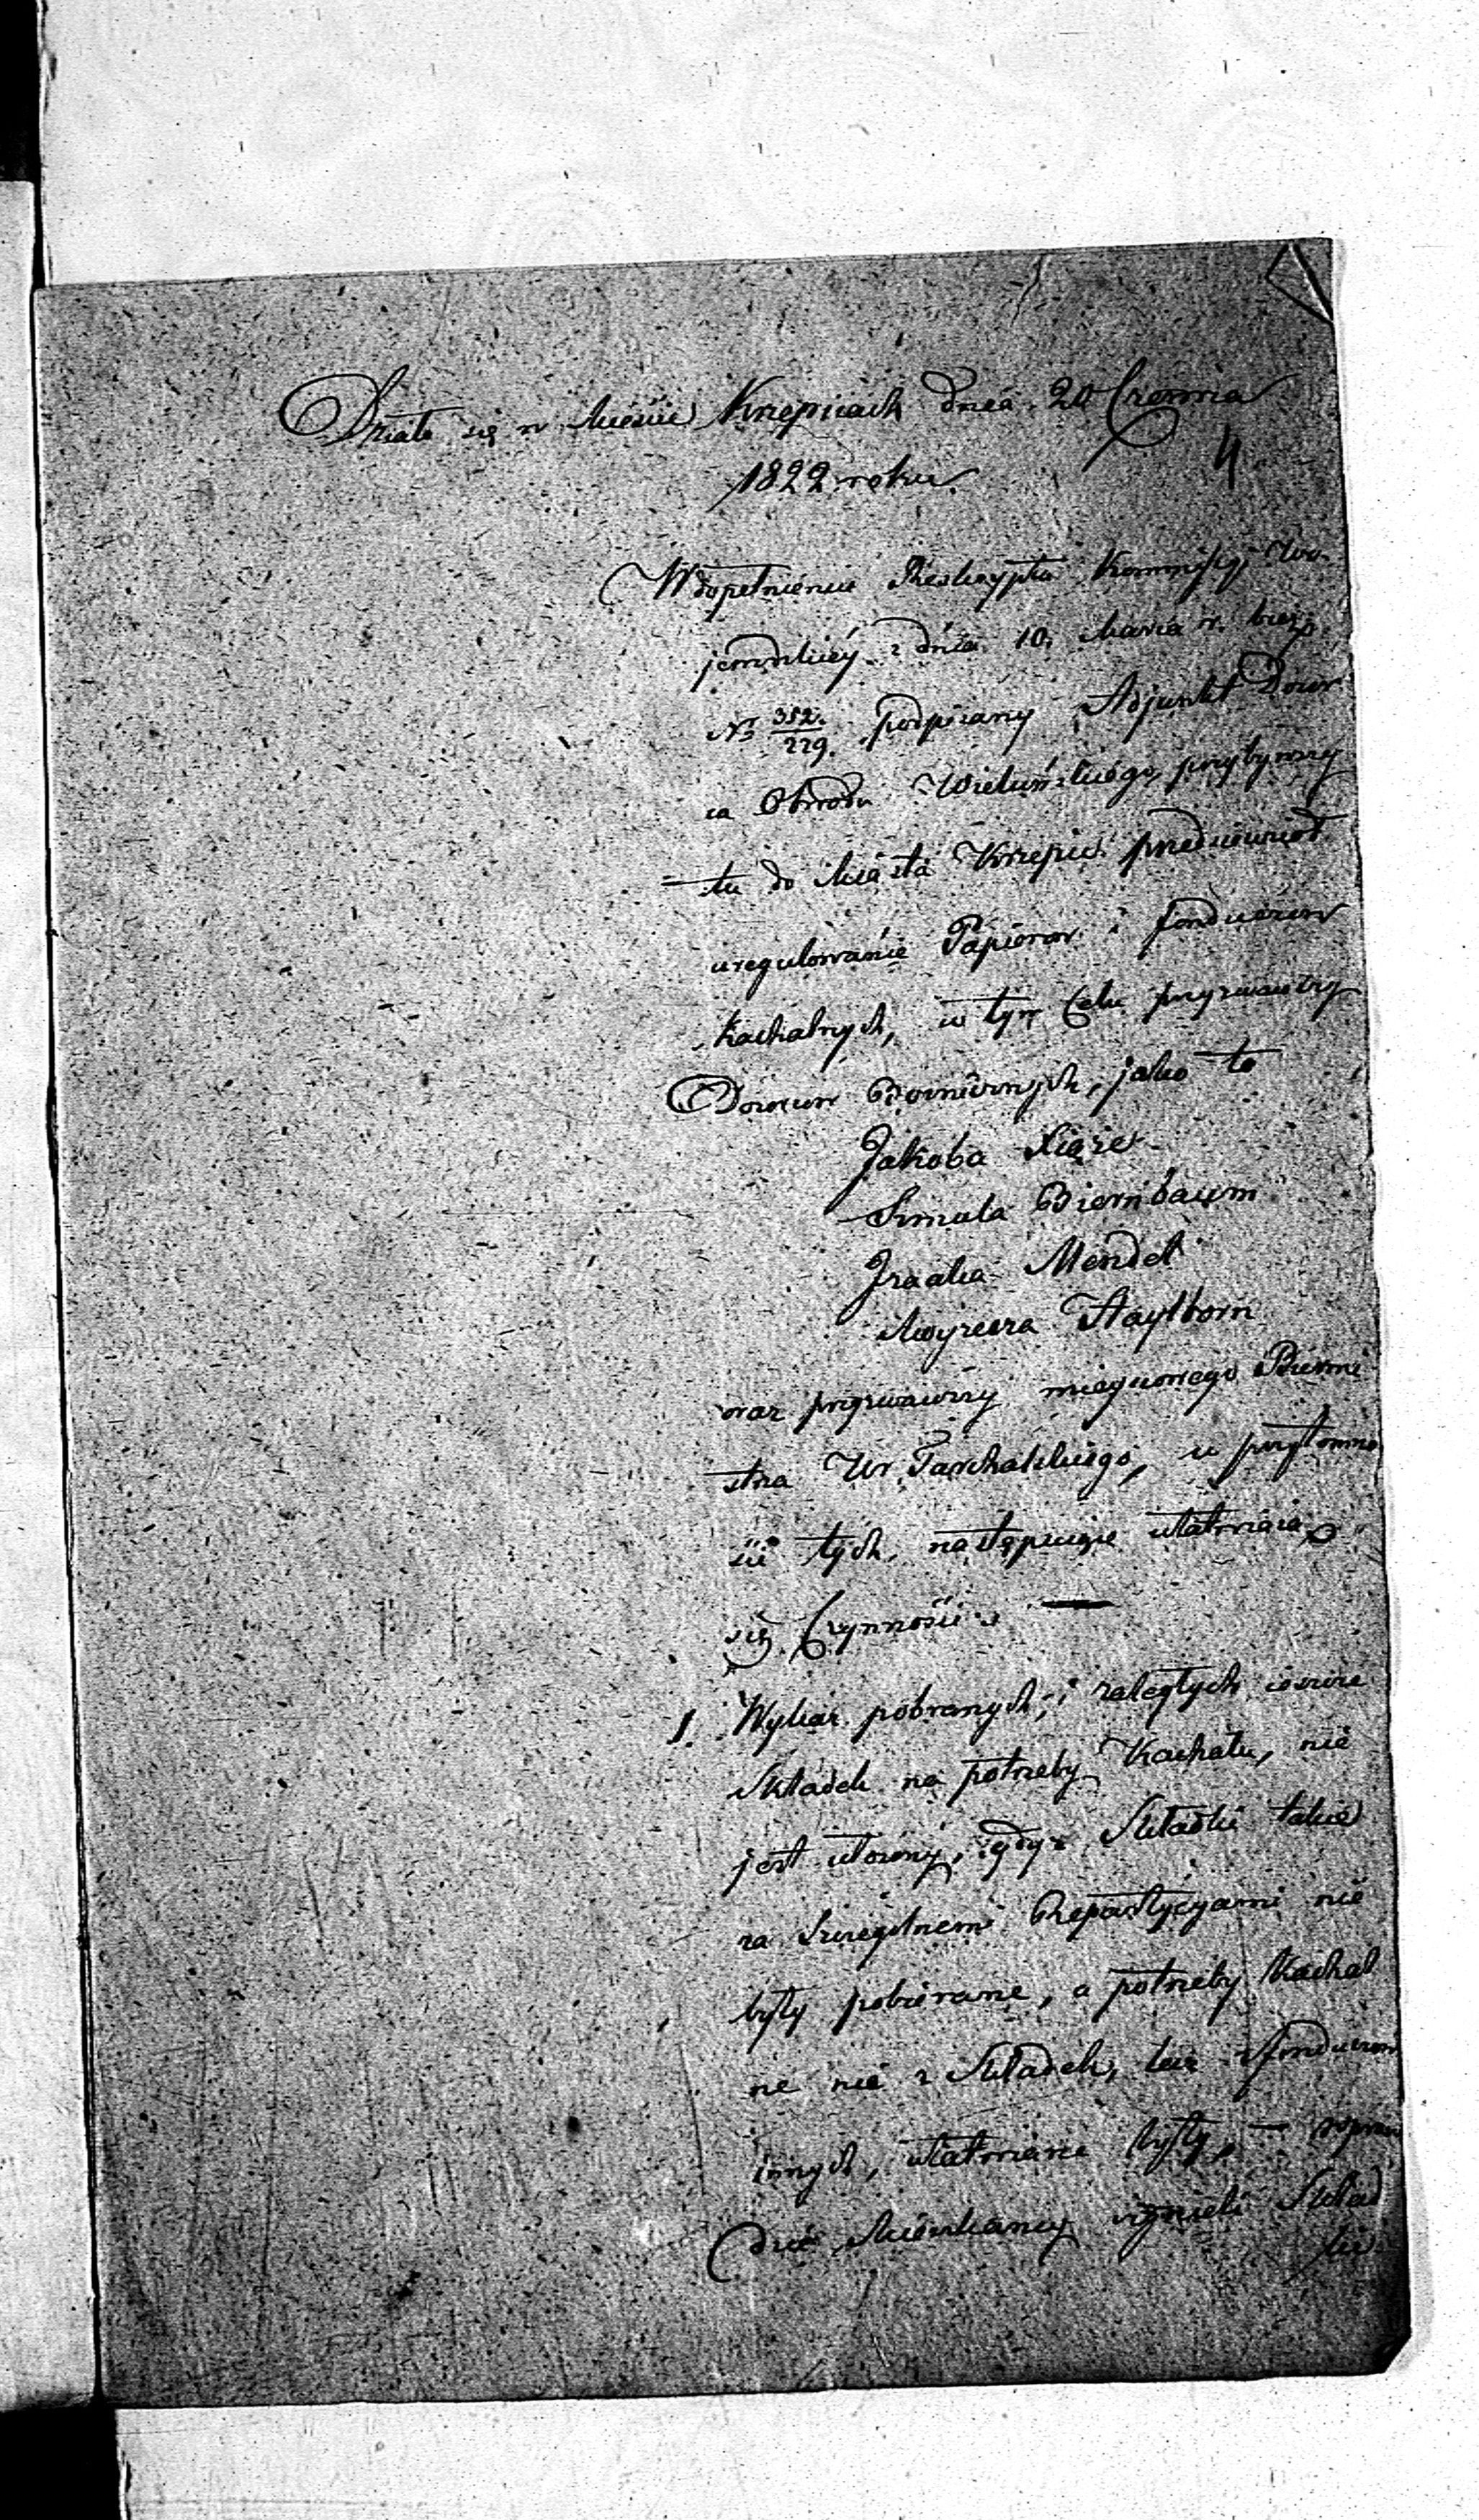 Działo się w Mieście Krzepicach dnia 20 Czerwca
4
1822 roku
W dopełnieniu Reskryptu Kommissyi Wo
jewódzkiey z dnia 10. Marca r. bież.
No 352./229. podpisany Adjunkt Dozor
ca Obwodu Wieluńskiego, przybywszy
tu do Miasta Krzepic przedsięwziął
uregulowanie Papierow i funduszow
Kachalnych, w tym Celu przyzwawszy
Dozorcow Bożnicznych, jako to
Jakoba
Smula Biernbaum
Izaaka Mendel
Moyzesza Haylborn
oraz przyzwawszy mieyscowego Burmi
strza Ur Tarchalskiego, w przytomno
ści tych, następuiące ułatwiaią
się Czynności
1. Wykaz pobranych, i zaległych ieszcze
Składek na potrzeby Kachału, nie
jest ułożony, gdyż Składki takie
za szczegolnemi Repartycyami nie
były pobierane, a potrzeby Kachal
ne nie z Składek, lecz z funduszow
innych, ułatwiane były, – wpraw
dzie Mieszkańcy Skład
ki